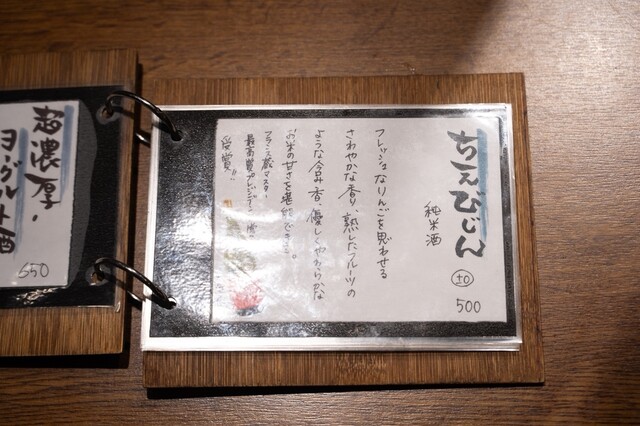 ちえびじん
純米酒
±0
500
フレッシュなりんごを思わせる
さわやかな香り、熟したフルーツの
ような含み香、優しくやわらかな
お米の甘さを堪能できる。
フランス蔵マスター
最高賞プレジデント賞
受賞!!
超濃厚!
ヨーグルト酒
650